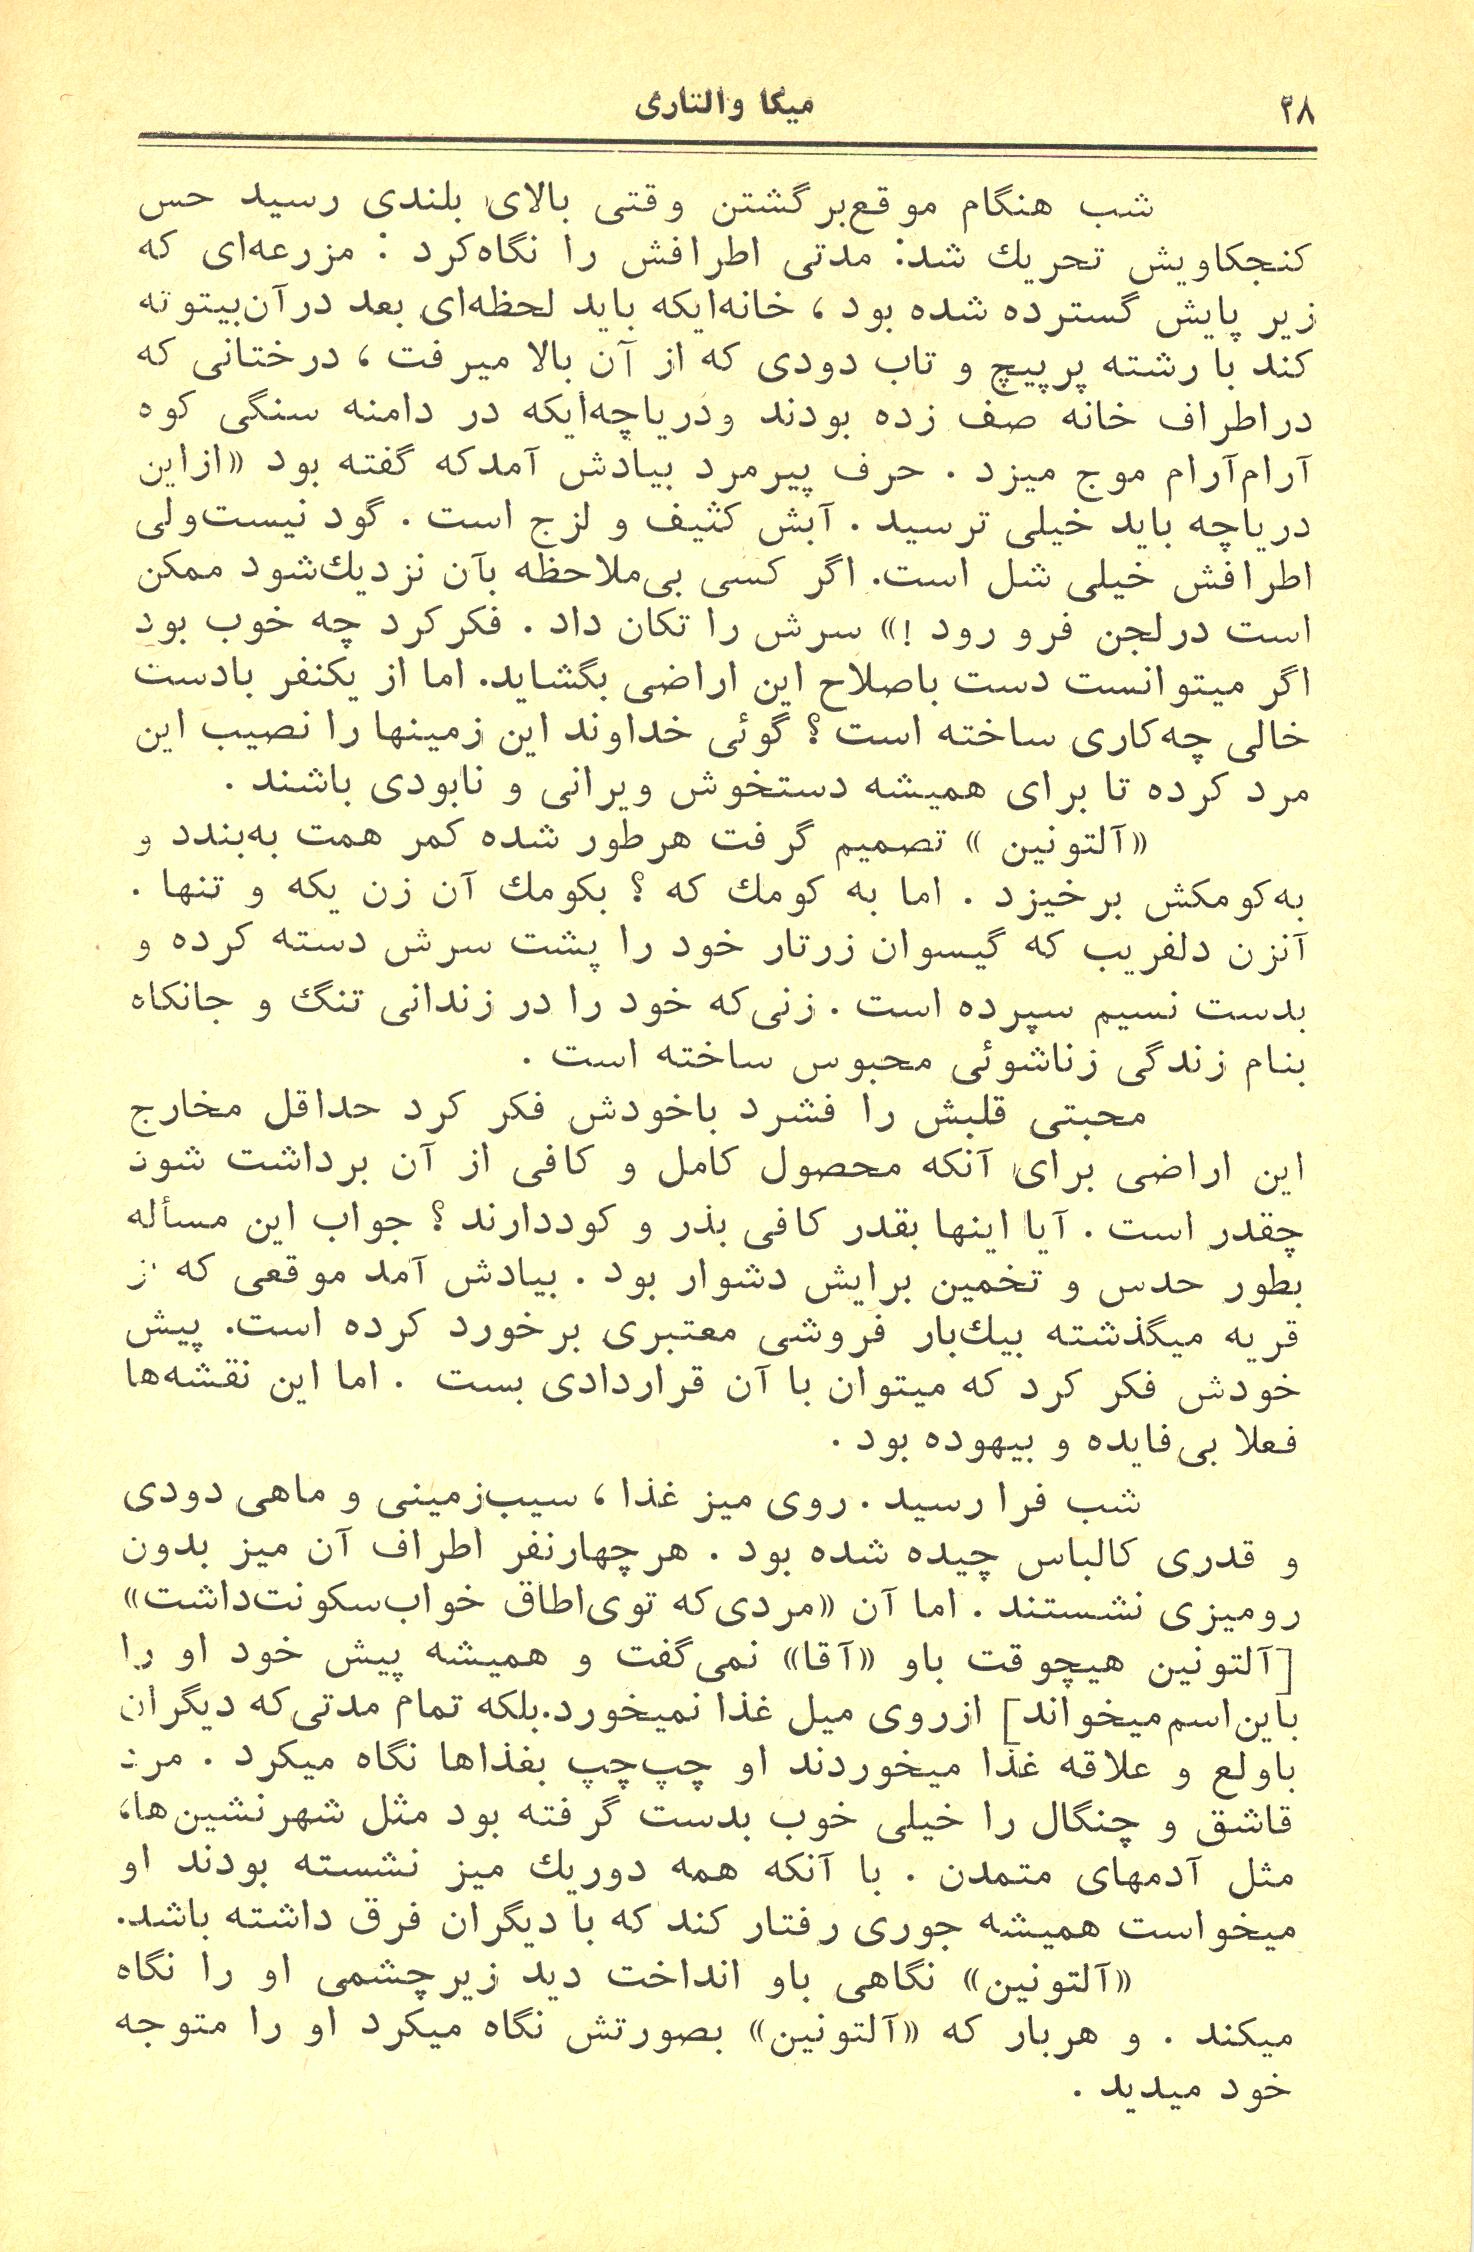 ۲۸
میکا والتاری
شب هنگام موقع‌برگشتن وقتی بالای بلندی رسید حس
کنجکاویش تحریك شد: مدتی اطرافش را نگاه‌کرد : مزرعه‌ای که
زیر پایش گسترده شده بود ، خانه‌ایکه باید لحظه‌ای بعد درآن‌بیتوته
کند با رشته پرپیچ و تاب دودی که از آن بالا میرفت ، درختانی که
دراطراف خانه صف زده بودند ودریاچه‌ایکه در دامنه سنگی کوه
آرام‌آرام موج میزد . حرف پیرمرد بیادش آمدکه گفته بود «ازاین
دریاچه باید خیلی ترسید . آبش کثیف و لزج است . گود نیست‌ولی
اطرافش خیلی شل است. اگر کسی بی‌ملاحظه بآن نزدیك‌شود ممکن
است درلجن فرو رود !» سرش را تکان داد . فکرکرد چه خوب بود
اگر میتوانست دست باصلاح این اراضی بگشاید. اما از یکنفر بادست
خالی چه‌کاری ساخته است؟ گوئی خداوند این زمینها را نصیب این
مرد کرده تا برای همیشه دستخوش ویرانی و نابودی باشند .
«آلتونین » تصمیم گرفت هرطور شده کمر همت به‌بندد و
به‌کومکش برخیزد . اما به کومك که ؟ بکومك آن زن یکه و تنها .
آنزن دلفریب که گیسوان زرتار خود را پشت سرش دسته کرده و
بدست نسیم سپرده است . زنی‌که خود را در زندانی تنگ و جانکاه
بنام زندگی زناشوئی محبوس ساخته است .
محبتی قلبش را فشرد باخودش فکر کرد حداقل مخارج
این اراضی برای آنکه محصول کامل و کافی از آن برداشت شود
چقدر است . آیا اینها بقدر کافی بذر و کوددارند ؟ جواب این مسأله
بطور حدس و تخمین برایش دشوار بود . بیادش آمد موقعی که از
قریه میگذشته بیك‌بار فروشی معتبری برخورد کرده است. پیش
خودش فکر کرد که میتوان با آن قراردادی بست . اما این نقشه‌ها
فعلا بی‌فایده و بیهوده بود .
شب فرا رسید . روی میز غذا ، سیب‌زمینی و ماهی دودی
و قدری کالباس چیده شده بود . هرچهارنفر اطراف آن میز بدون
رومیزی نشستند . اما آن «مردی‌که توی‌اطاق خواب‌سکونت‌داشت»
[آلتونین هیچوقت باو «آقا» نمی‌گفت و همیشه پیش خود او را
باین‌اسم‌میخواند] ازروی میل غذا نمیخورد.بلکه تمام مدتی‌که دیگران
باولع و علاقه غذا میخوردند او چپ‌چپ بغذاها نگاه میکرد . مرد
قاشق و چنگال را خیلی خوب بدست گرفته بود مثل شهرنشین‌ها،
مثل آدمهای متمدن . با آنکه همه دوریك میز نشسته بودند او
میخواست همیشه جوری رفتار کند که با دیگران فرق داشته باشد.
«آلتونین» نگاهی باو انداخت دید زیرچشمی او را نگاه
میکند . و هربار که «آلتونین» بصورتش نگاه میکرد او را متوجه
خود میدید .